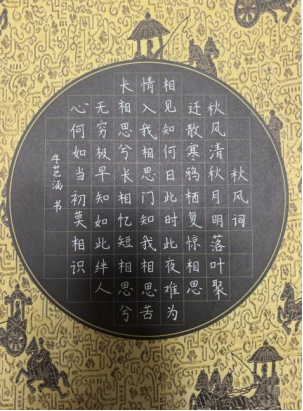 秋风词
秋风清秋月明落叶聚
还散寒鸦栖复惊相思
相见知何日此时此夜难为
情入我相思门知我相思苦
长相思兮长相忆短相思兮
无穷极早知如此绊人
心何如当初莫相识
牛艺涵 书